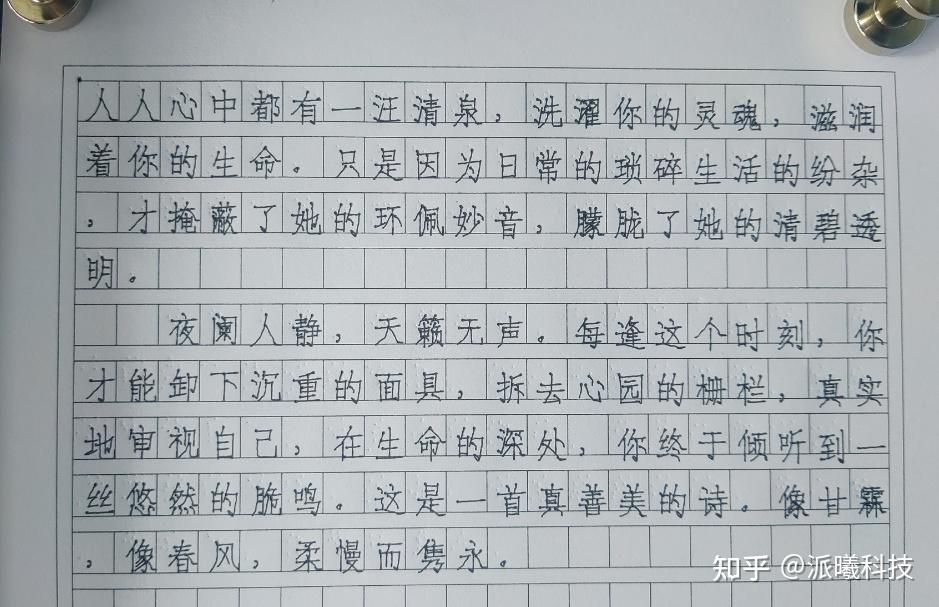 人人心中都有一汪清泉，洗濯你的灵魂，滋润
着你的生命。只是因为日常的琐碎生活的纷杂
，才掩蔽了她的环佩妙音，朦胧了她的清碧透
明。
夜阑人静，天籁无声。每逢这个时刻，你
才能卸下沉重的面具，拆去心园的栅栏，真实
地审视自己，在生命的深处，你终于倾听到一
丝悠然的脆鸣。这是一首真善美的诗。像甘霖
，像春风，柔慢而隽永。
知乎 @派曦科技